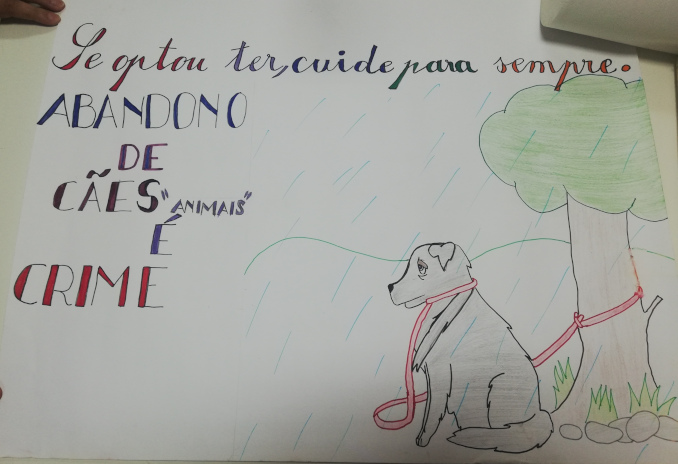 Se optou ter, cuide para sempre.
ABANDONO
DE
CÃES "ANIMAIS"
É
CRIME